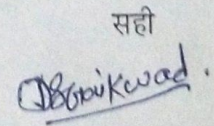 सही
DBGaikwad.